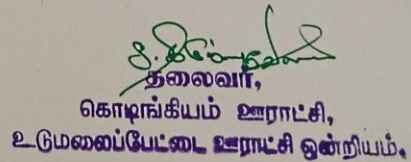 தலைவர்,
கொடிங்கியம் ஊராட்சி,
உடுமலைப்பேட்டை ஊராட்சி ஒன்றியம்.